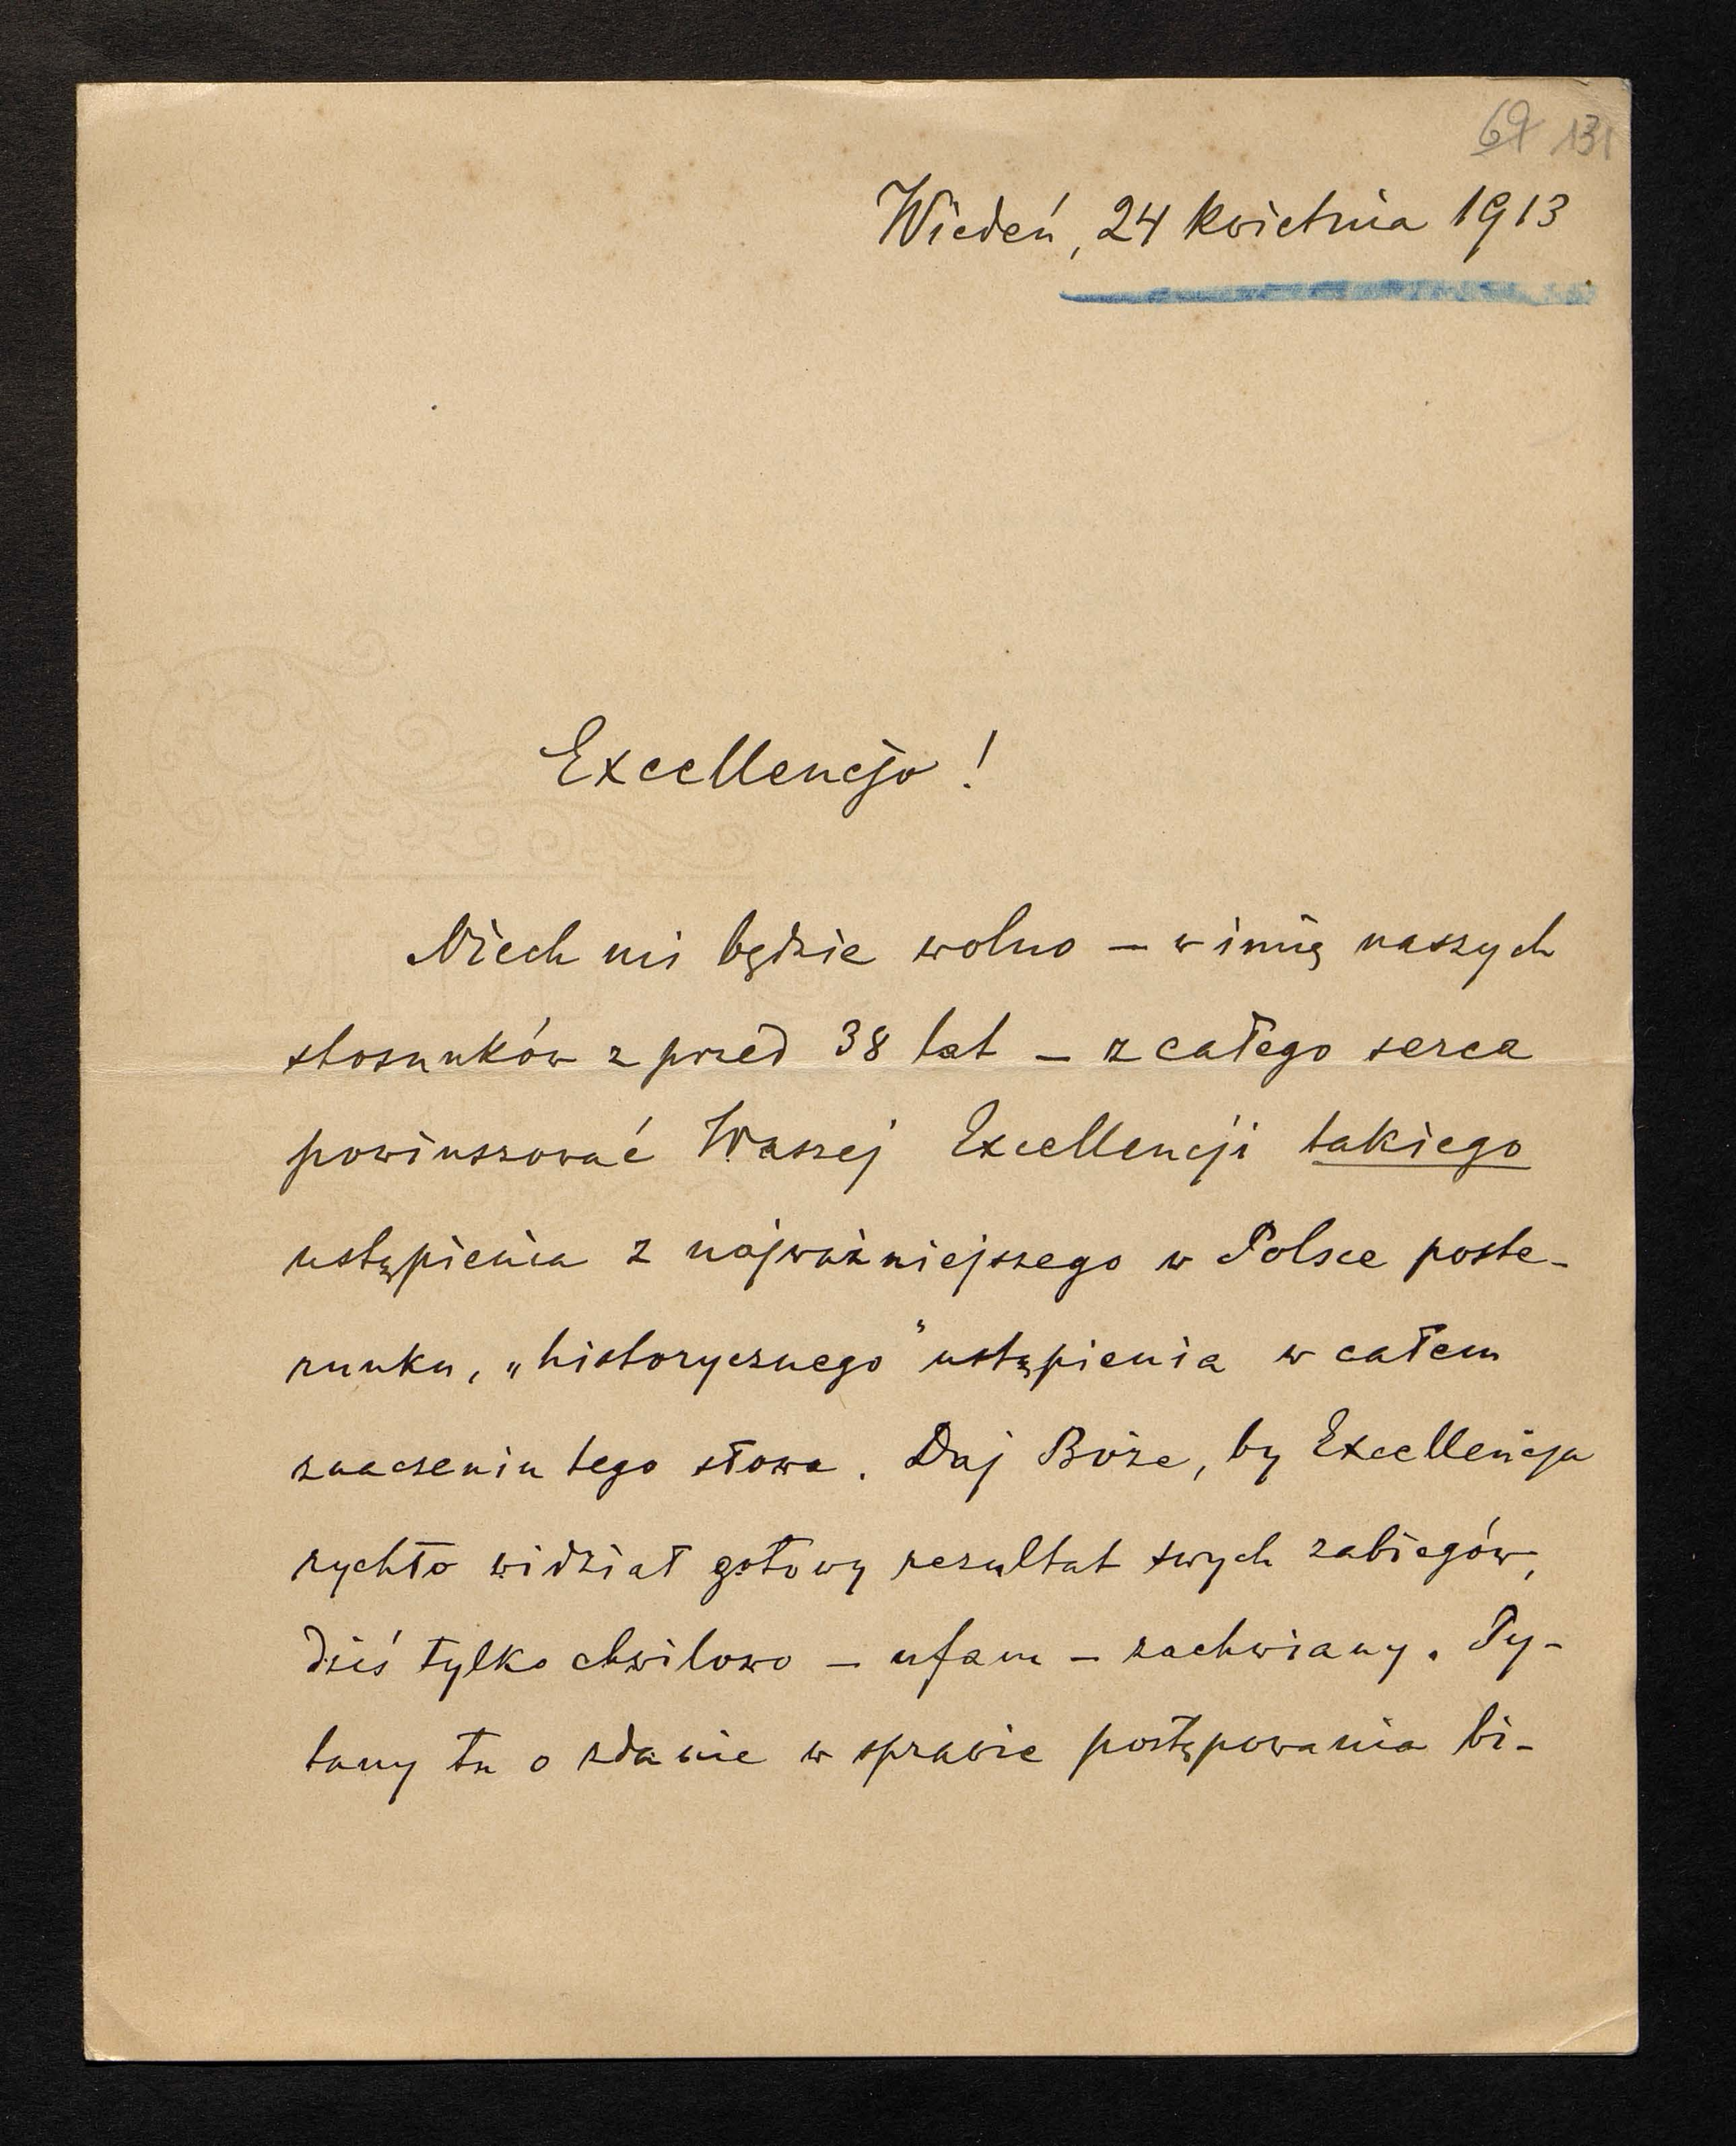 69 131
Wiedeń, 24 kwietnia 1913
Excellencjo!
Niech mi będzie wolno – w imię naszych
stosunków z przed 38 lat – z całego serca
powinszować Waszej Excellencji takiego
ustąpienia z najważniejszego w Polsce poste-
runku, „historycznego" ustąpienia w całem
znaczeniu tego słowa. Daj Boże, by Excellencja
rychło widział gotowy rezultat swych zabiegów,
dziś tylko chwilowo – ufam – zachwiany. Py-
tany tu o zdanie w sprawie postępowania bi-